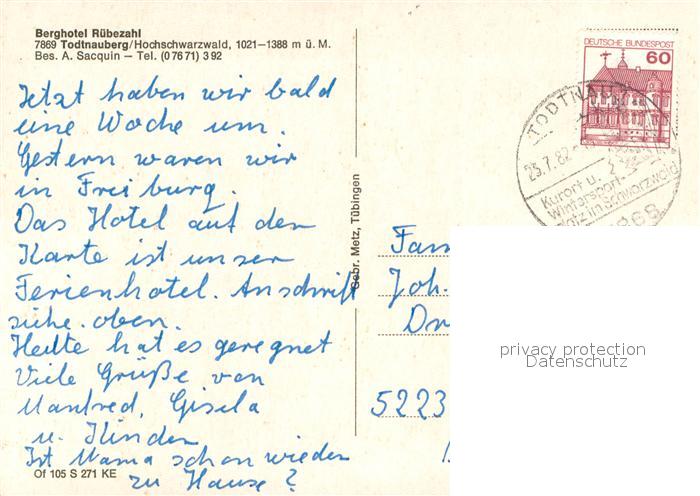 Berghotel Rübezahl
7869 Todtnauberg/Hochschwarzwald, 1021–1388 m ü. M.
Bes. A. Sacquin – Tel. (0 76 71) 3 92
Jetzt haben wir bald
eine Woche um.
Gestern waren wir
in Freiburg.
Das Hotel auf der
Karte ist unser
Ferienhotel. Anschrift
siehe oben.
Heute hat es geregnet
Viele Grüße von
Manfred, Gisela
u. Kinder
Ist Mama schon wieder
zu Hause?
Of 105 S 271 KE
Gebr. Metz, Tübingen
DEUTSCHE BUNDESPOST
60
TODTNAU
23.7.82
Kurort u.
Wintersport-
platz im Schwarzwald
7868
Fam
Joh.
Dr
5223
privacy protection
Datenschutz